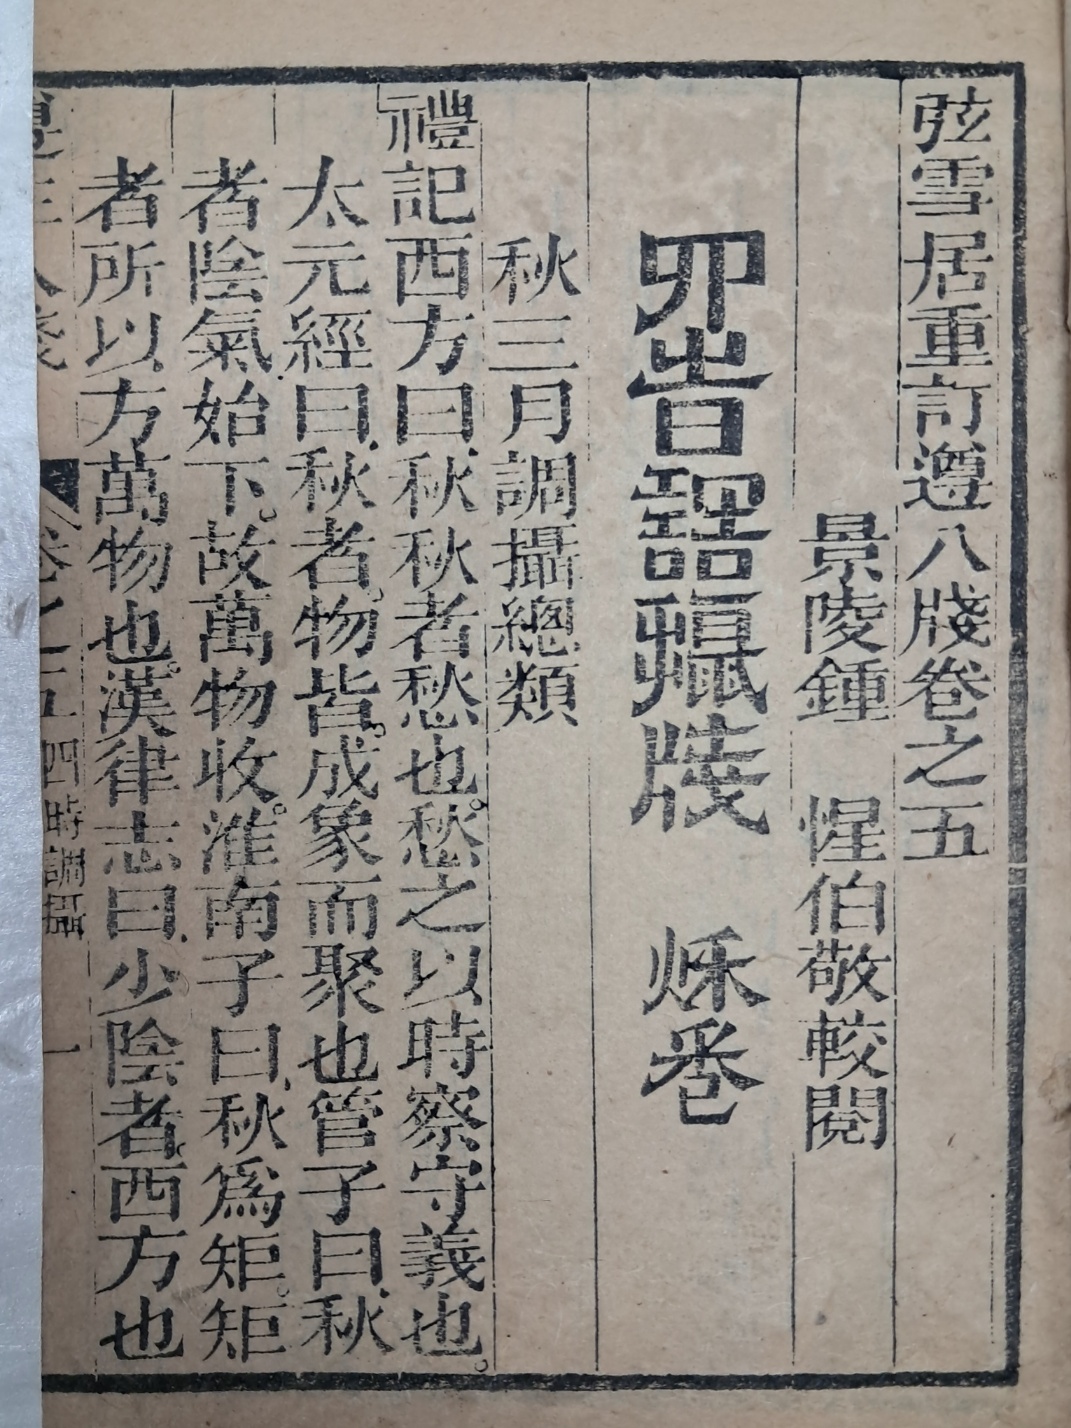 弦雪居重訂遵八牋卷之五
景陵鍾　惺伯敬較閱
四時調攝牋　秋卷
秋三月調攝總類
禮記西方曰秋秋者愁也愁之以時察守義也
太元經曰秋者物皆成象而聚也管子曰秋
者陰氣始下故萬物收淮南子曰秋爲矩矩
者所以方萬物也漢律志曰少陰者西方也
卷之五 四時調攝 一